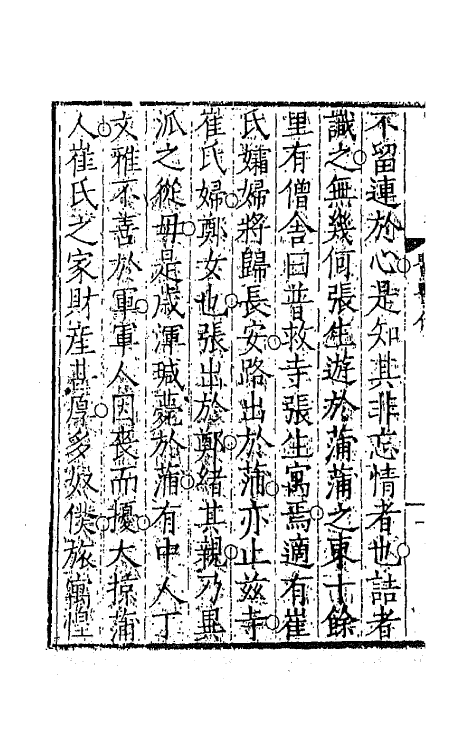 不留連於心是知其非忘情者也詰者
識之無幾何張生遊於蒲蒲之東十餘
里有僧舍曰普救寺張生寓焉適有崔
氏孀婦將歸長安路出於蒲亦止茲寺
崔氏婦鄭女也張出於鄭緒其親乃異
派之從母是歲渾瑊薨於蒲有中人丁
文雅不善於軍軍人因喪而擾大掠蒲
人崔氏之家財産甚厚多奴僕旅寓惶